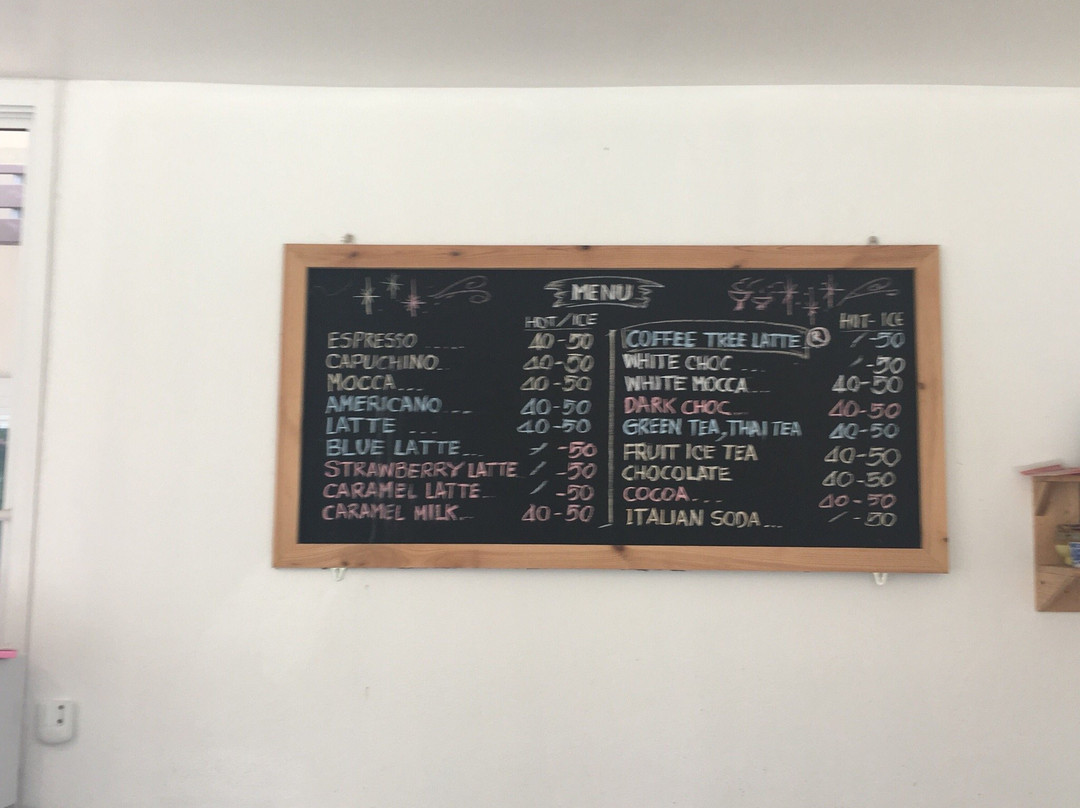 MENU
HOT/ICE
ESPRESSO ..... 40-50
CAPUCHINO.. 40-50
MOCCA... 40-50
AMERICANO ... 40-50
LATTE ... 40-50
BLUE LATTE... / -50
STRAWBERRY LATTE / -50
CARAMEL LATTE.. / -50
CARAMEL MILK.. 40-50
HOT-ICE
COFFEE TREE LATTE ® / -50
WHITE CHOC ... / -50
WHITE MOCCA... 40-50
DARK CHOC... 40-50
GREEN TEA, THAI TEA 40-50
FRUIT ICE TEA 40-50
CHOCOLATE 40-50
COCOA... 40-50
ITALIAN SODA... / -50